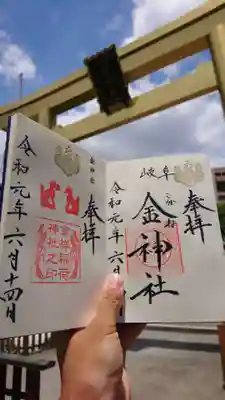 奉拝
岐阜
金神社
令和元年六月
金神社
奉拝
金祥稲荷
神社之印
令和元年六月十四日